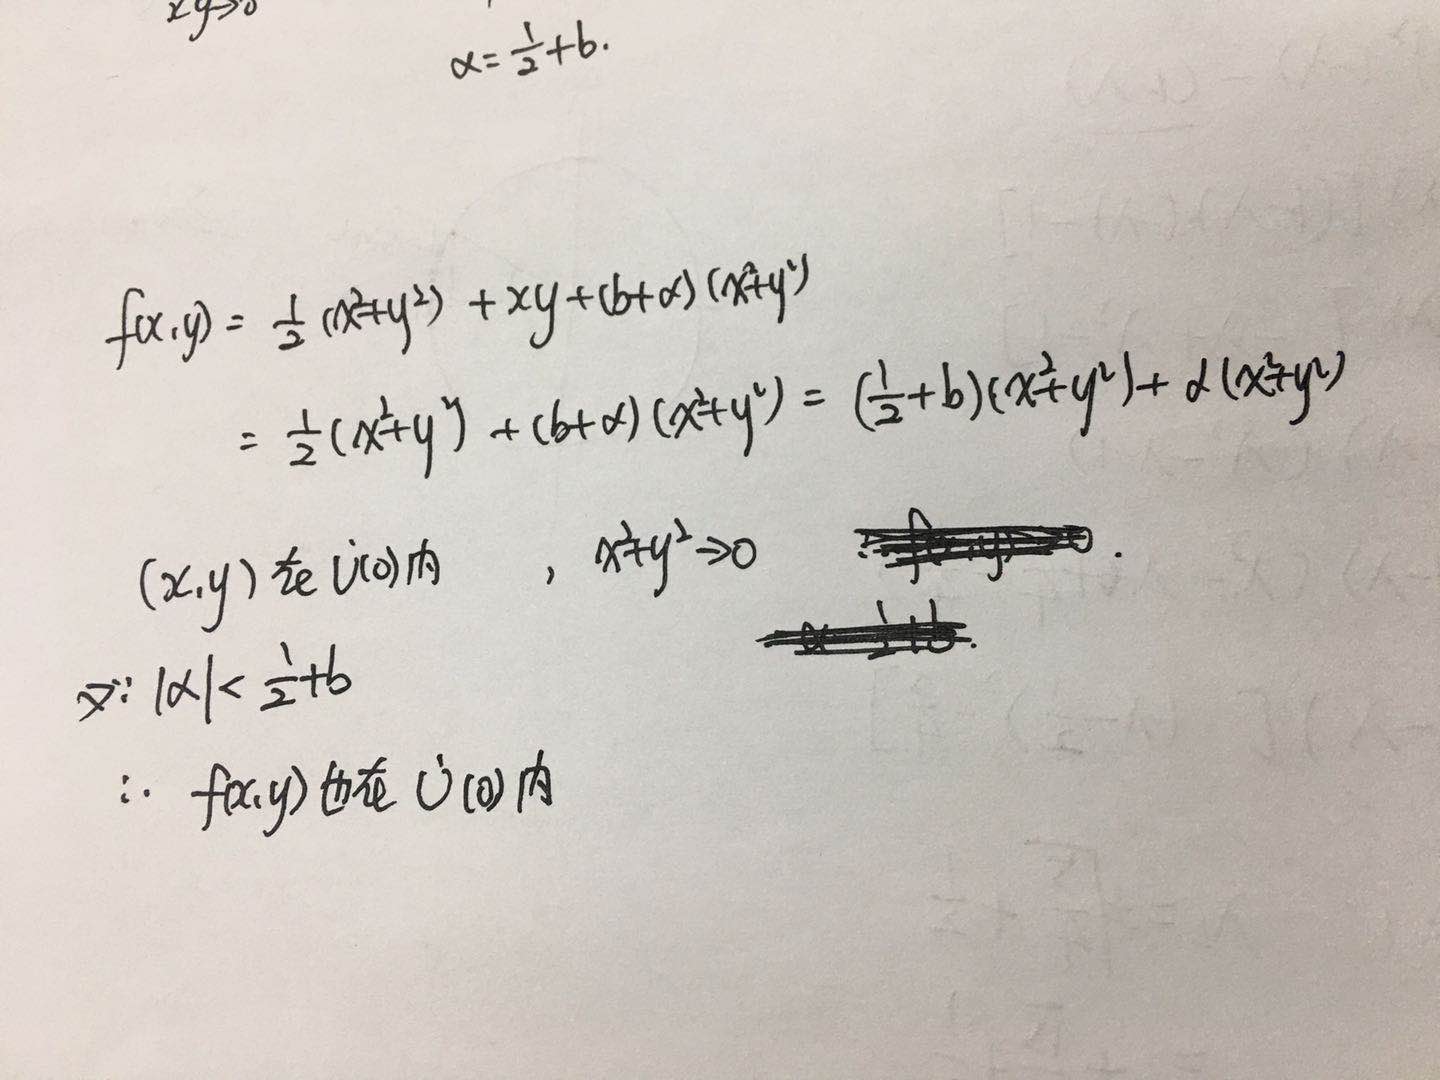 xy→0
α=½+b.
f(x,y)=½(x²+y²)+xy+(b+α)(x²+y²)
=½(x²+y²)+(b+α)(x²+y²)=(½+b)(x²+y²)+α(x²+y²)
(x,y)在U̇(0)内 , x²+y²→0
又∵ |α|<½+b
∴ f(x,y)也在U̇(0)内